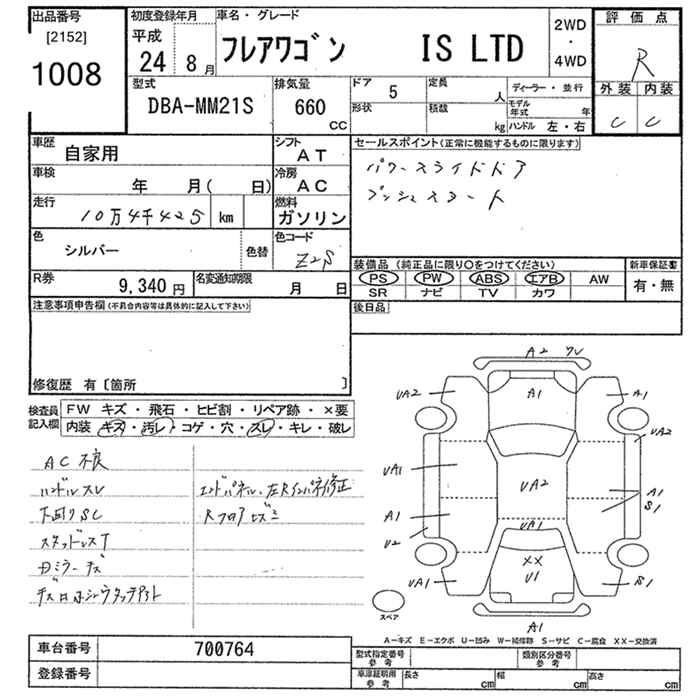 出品番号
[2152]
1008
初度登録年月
平成
24 8月
車名・グレード
フレアワゴン IS LTD
2WD
・
4WD
評価点
R
外装 内装
C C
型式
DBA-MM21S
排気量
660
CC
ドア 5
形状
定員 人
積載 kg
ディーラー・並行
モデル年式 年
ハンドル 左・右
車歴 自家用
シフト AT
車検 年 月( 日)
冷房 AC
走行 10万4千425 km
燃料 ガソリン
色 シルバー
色替
色コード Z2S
R券 9,340円
名変通知期限 月 日
セールスポイント(正常に機能するものに限ります)
パワースライドドア
プッシュスタート
装備品(純正品に限り〇をつけてください)
PS PW ABS エアB AW
SR ナビ TV カワ
新車保証書
有・無
後日品
注意事項申告欄(不具合内容等は具体的に記入して下さい)
修復歴 有〔箇所 〕
検査員記入欄
FW キズ・飛石・ヒビ割・リペア跡・×要
内装 キズ・汚レ・コゲ・穴・スレ・キレ・破レ
AC不良
ハンドルスレ
下回りSC
スタッドレスT
エンドパネル、左Rインパネ修正
Rフロアヒズミ
A2 ワレ
A1
UA2
A1
UA2
UA1
UA2
A1
S1
A1
U2
UA1
XX
U1
UA1
S1
A1
スペア
A-キズ E-エクボ U-凹み W-補修跡 S-サビ C-腐食 XX-交換済
車台番号 700764
登録番号
型式指定番号 参考
類別区分番号 参考
車庫証明用 参考
長さ cm
幅 cm
高さ cm